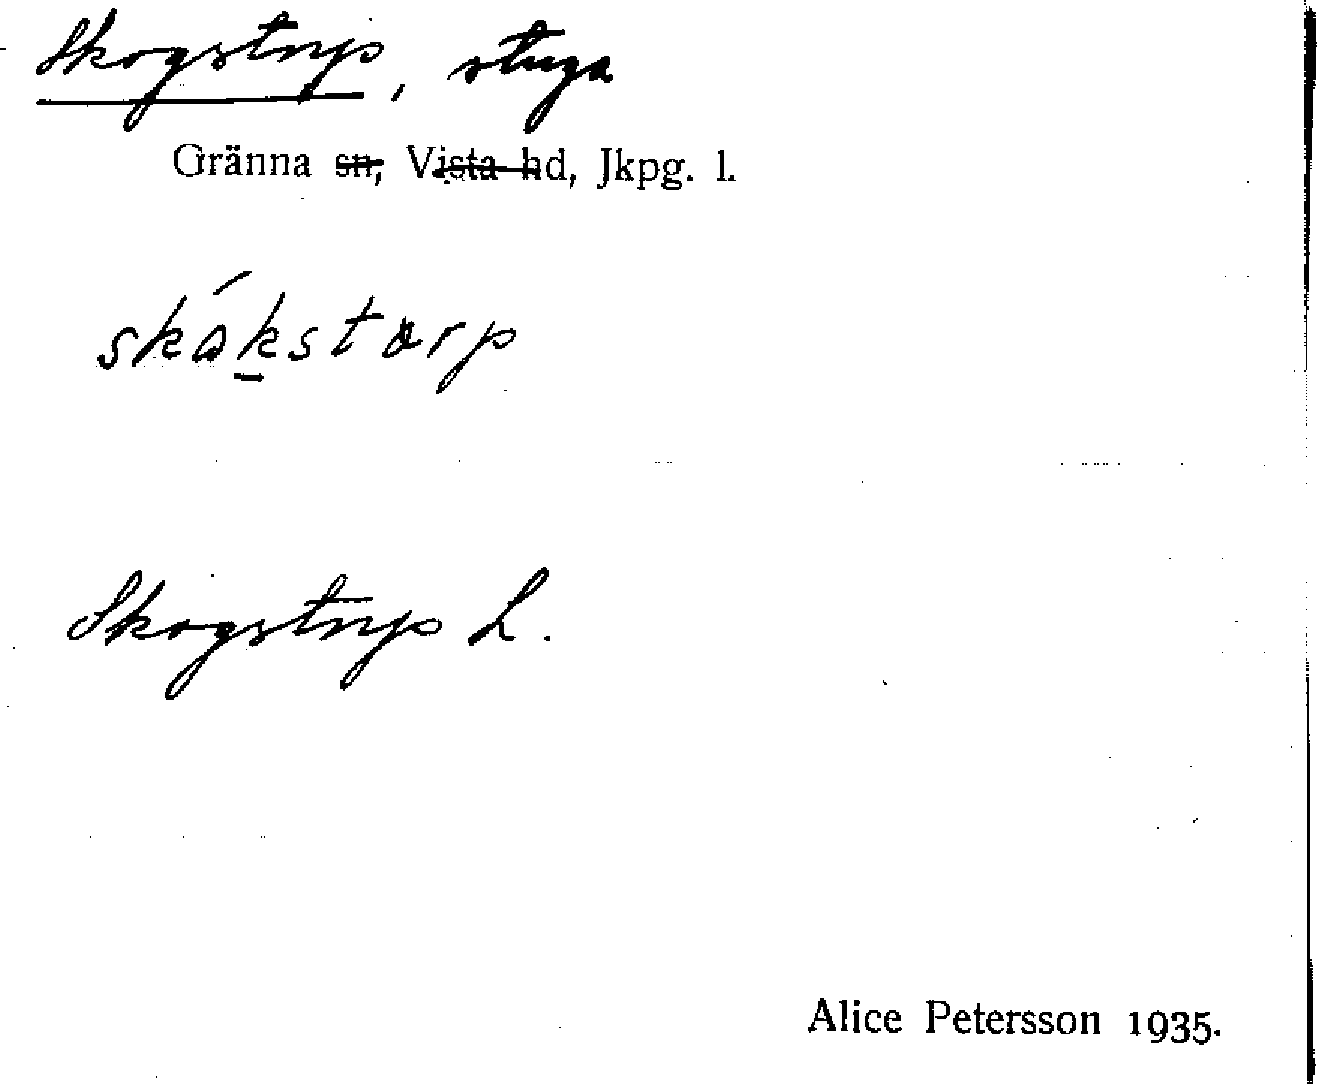 Skogstorp, stuga
Gränna sn, Vista hd, Jkpg. l.
skákstarp
Skogstorp L.
Alice Petersson 1935.